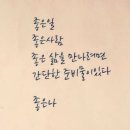 좋은일
좋은사람
좋은 삶을 만나려면
간단한 준비물이있다
좋은나